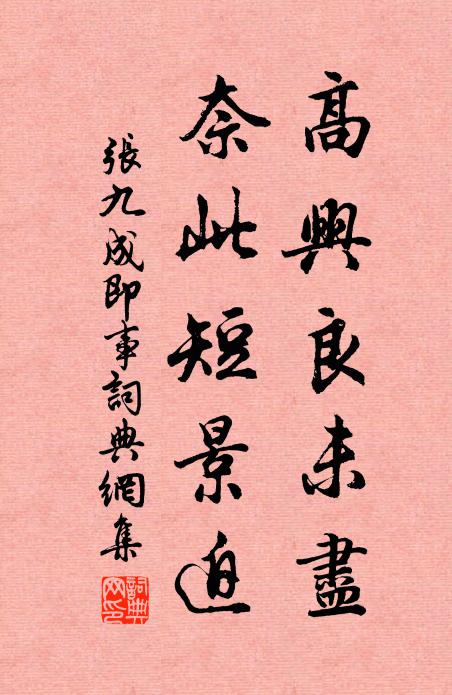 高興良未盡
奈此短景迫
張九成即事詞典網集
詞典網印